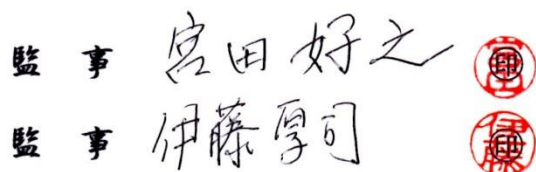 監事 宮田好之 ㊞
監事 伊藤厚司 ㊞